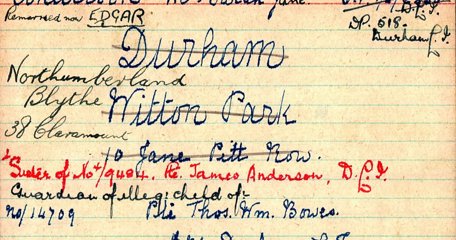 Sarah Jane.
Remarried now EDGAR
D.L.I.
DP. 618.
Durham L.I.
Durham
Northumberland
Blythe
Witton Park
38 Claremount
10 Jane Pitt Row.
Sister of No 4/9484. Pte. James Anderson, D.L.I.
Guardian of illegi: child of:
No/14709 Pte Thos. Wm. Bowes.